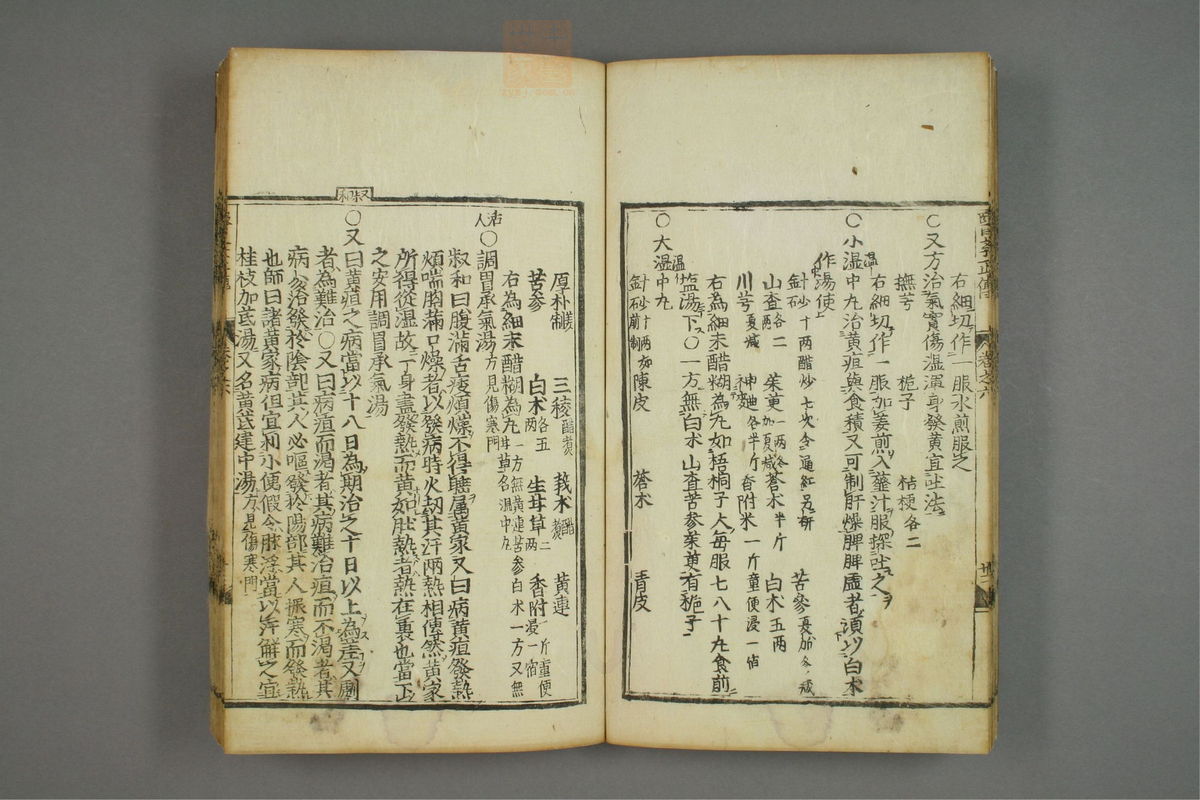 右細切作一服水煎服之
○又方治氣實傷濕渾身發黃宜吐法
撫芎 梔子 桔梗各二
右細切作一服加姜煎入虀汁服探吐之
○小溫中丸治黃疸與食積又可制肝燥脾脾虛者須以白朮
作湯使
針砂十兩醋炒七次令通紅另研 苦參夏加冬減
山査各二兩 茱萸一兩冬加夏減 蒼朮半斤 白朮五兩
川芎夏減 神麯各半斤 香附米一斤童便浸一宿
右為細末醋糊為丸如梧桐子大每服七八十丸食前
塩湯下○一方無白朮山査苦參茱萸有梔子
○大溫中丸
針砂十兩如前制 陳皮 蒼朮 青皮
厚朴姜制 三稜醋煮 莪朮醋煮 黃連
苦參 白朮各五兩 生甘草二兩 香附一斤童便浸一宿
右為細末醋糊為丸一方無黃連苦參白朮一方又無甘草名溫中丸
○調胃承氣湯方見傷寒門
叔和曰腹滿舌痿煩燥不得睡属黃家又曰病黃疸發熱
煩喘胸滿口燥者以發病時火劫其汗兩熱相使然黃家
所得從湿故一身盡發熱而黃如肚熱者熱在裏也當下
之安用調胃承氣湯
○又曰黃疸之病當以十八日為期治之十日以上為差又劇
者為難治○又曰病疸而渴者其病難治疸而不渴者其
病可治發於陰部其人必嘔發於陽部其人振寒而發熱
也師曰諸黃家病但宜利小便假令脉浮當以汗解之宜
桂枝加芪湯又名黃芪建中湯方見傷寒門